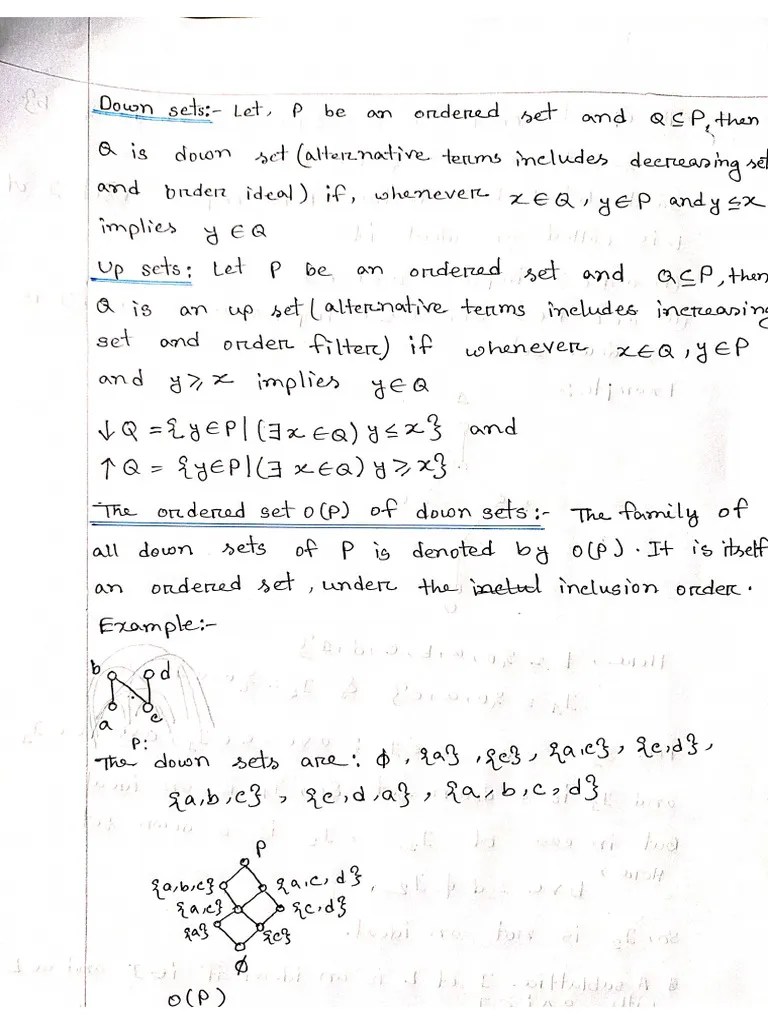 Down sets:- Let, P be an ordered set and Q⊆P, then
Q is down set (alternative terms includes decreasing set
and order ideal) if, whenever x∈Q, y∈P and y≤x
implies y∈Q
Up sets: Let P be an ordered set and Q⊆P, then
Q is an up set (alternative terms includes increasing
set and order filter) if whenever x∈Q, y∈P
and y⩾x implies y∈Q
↓Q = {y∈P|(∃x∈Q) y≤x} and
↑Q = {y∈P|(∃ x∈Q) y⩾x}.
The ordered set O(P) of down sets:- The family of
all down sets of P is denoted by O(P). It is itself
an ordered set, under the inclusion order.
Example:-
b d
a c
P:
The down sets are: ϕ, {a}, {c}, {a,c}, {c,d},
{a,b,c}, {c,d,a}, {a,b,c,d}
P
{a,b,c} {a,c,d}
{a,c} {c,d}
{a} {c}
ϕ
O(P)